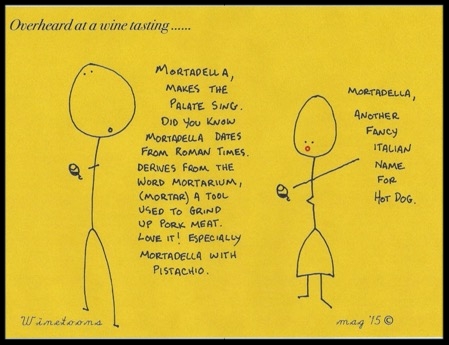 Overheard at a wine tasting......
MORTADELLA,
MAKES THE
PALATE SING.
DID YOU KNOW
MORTADELLA DATES
FROM ROMAN TIMES.
DERIVES FROM THE
WORD MORTARIUM,
(MORTAR) A TOOL
USED TO GRIND
UP PORK MEAT.
LOVE IT! ESPECIALLY
MORTADELLA WITH
PISTACHIO.
MORTADELLA,
ANOTHER
FANCY
ITALIAN
NAME
FOR
HOT DOG.
Winetoons
mag '15 ©